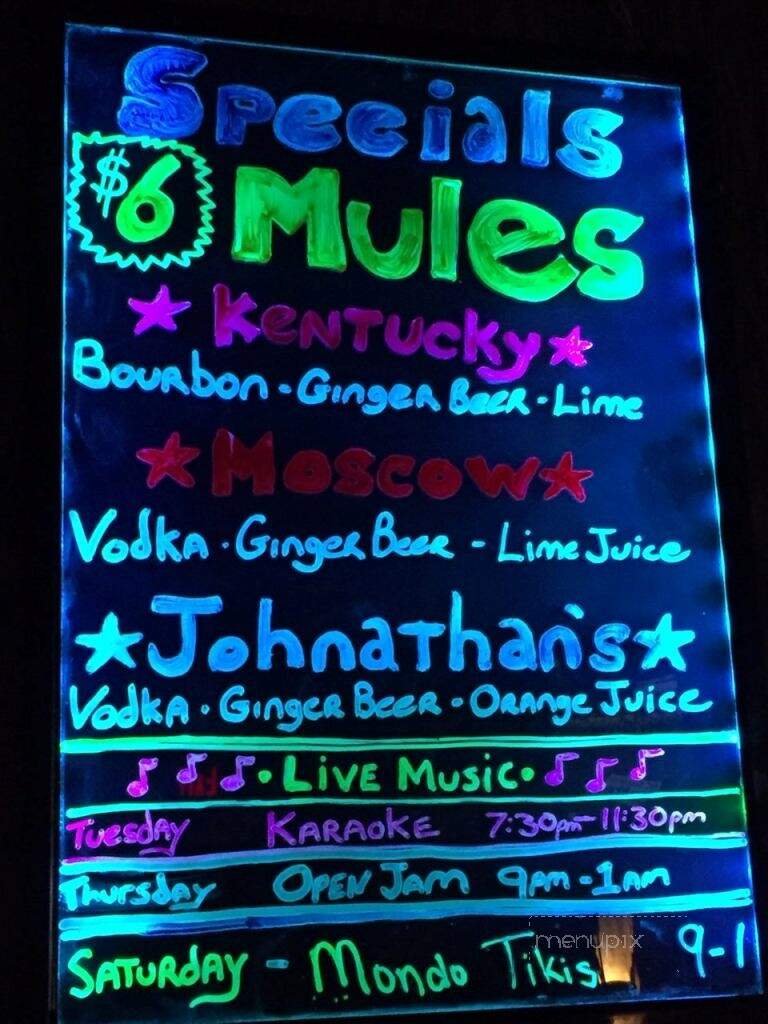 Specials
$6 Mules
Kentucky
Bourbon - Ginger Beer - Lime
Moscow
Vodka · Ginger Beer - Lime Juice
Johnathan's
Vodka · Ginger Beer · Orange Juice
· Live Music ·
Tuesday Karaoke 7:30pm-11:30pm
Thursday Open Jam 9pm-1am
Saturday - Mondo Tikis 9-1
menupix